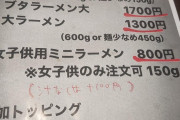 ブタラーメン大 1700円
大ラーメン 1300円
(600g or 麺少なめ450g)
女子供用ミニラーメン 800円
※女子供のみ注文可 150g
加トッピング